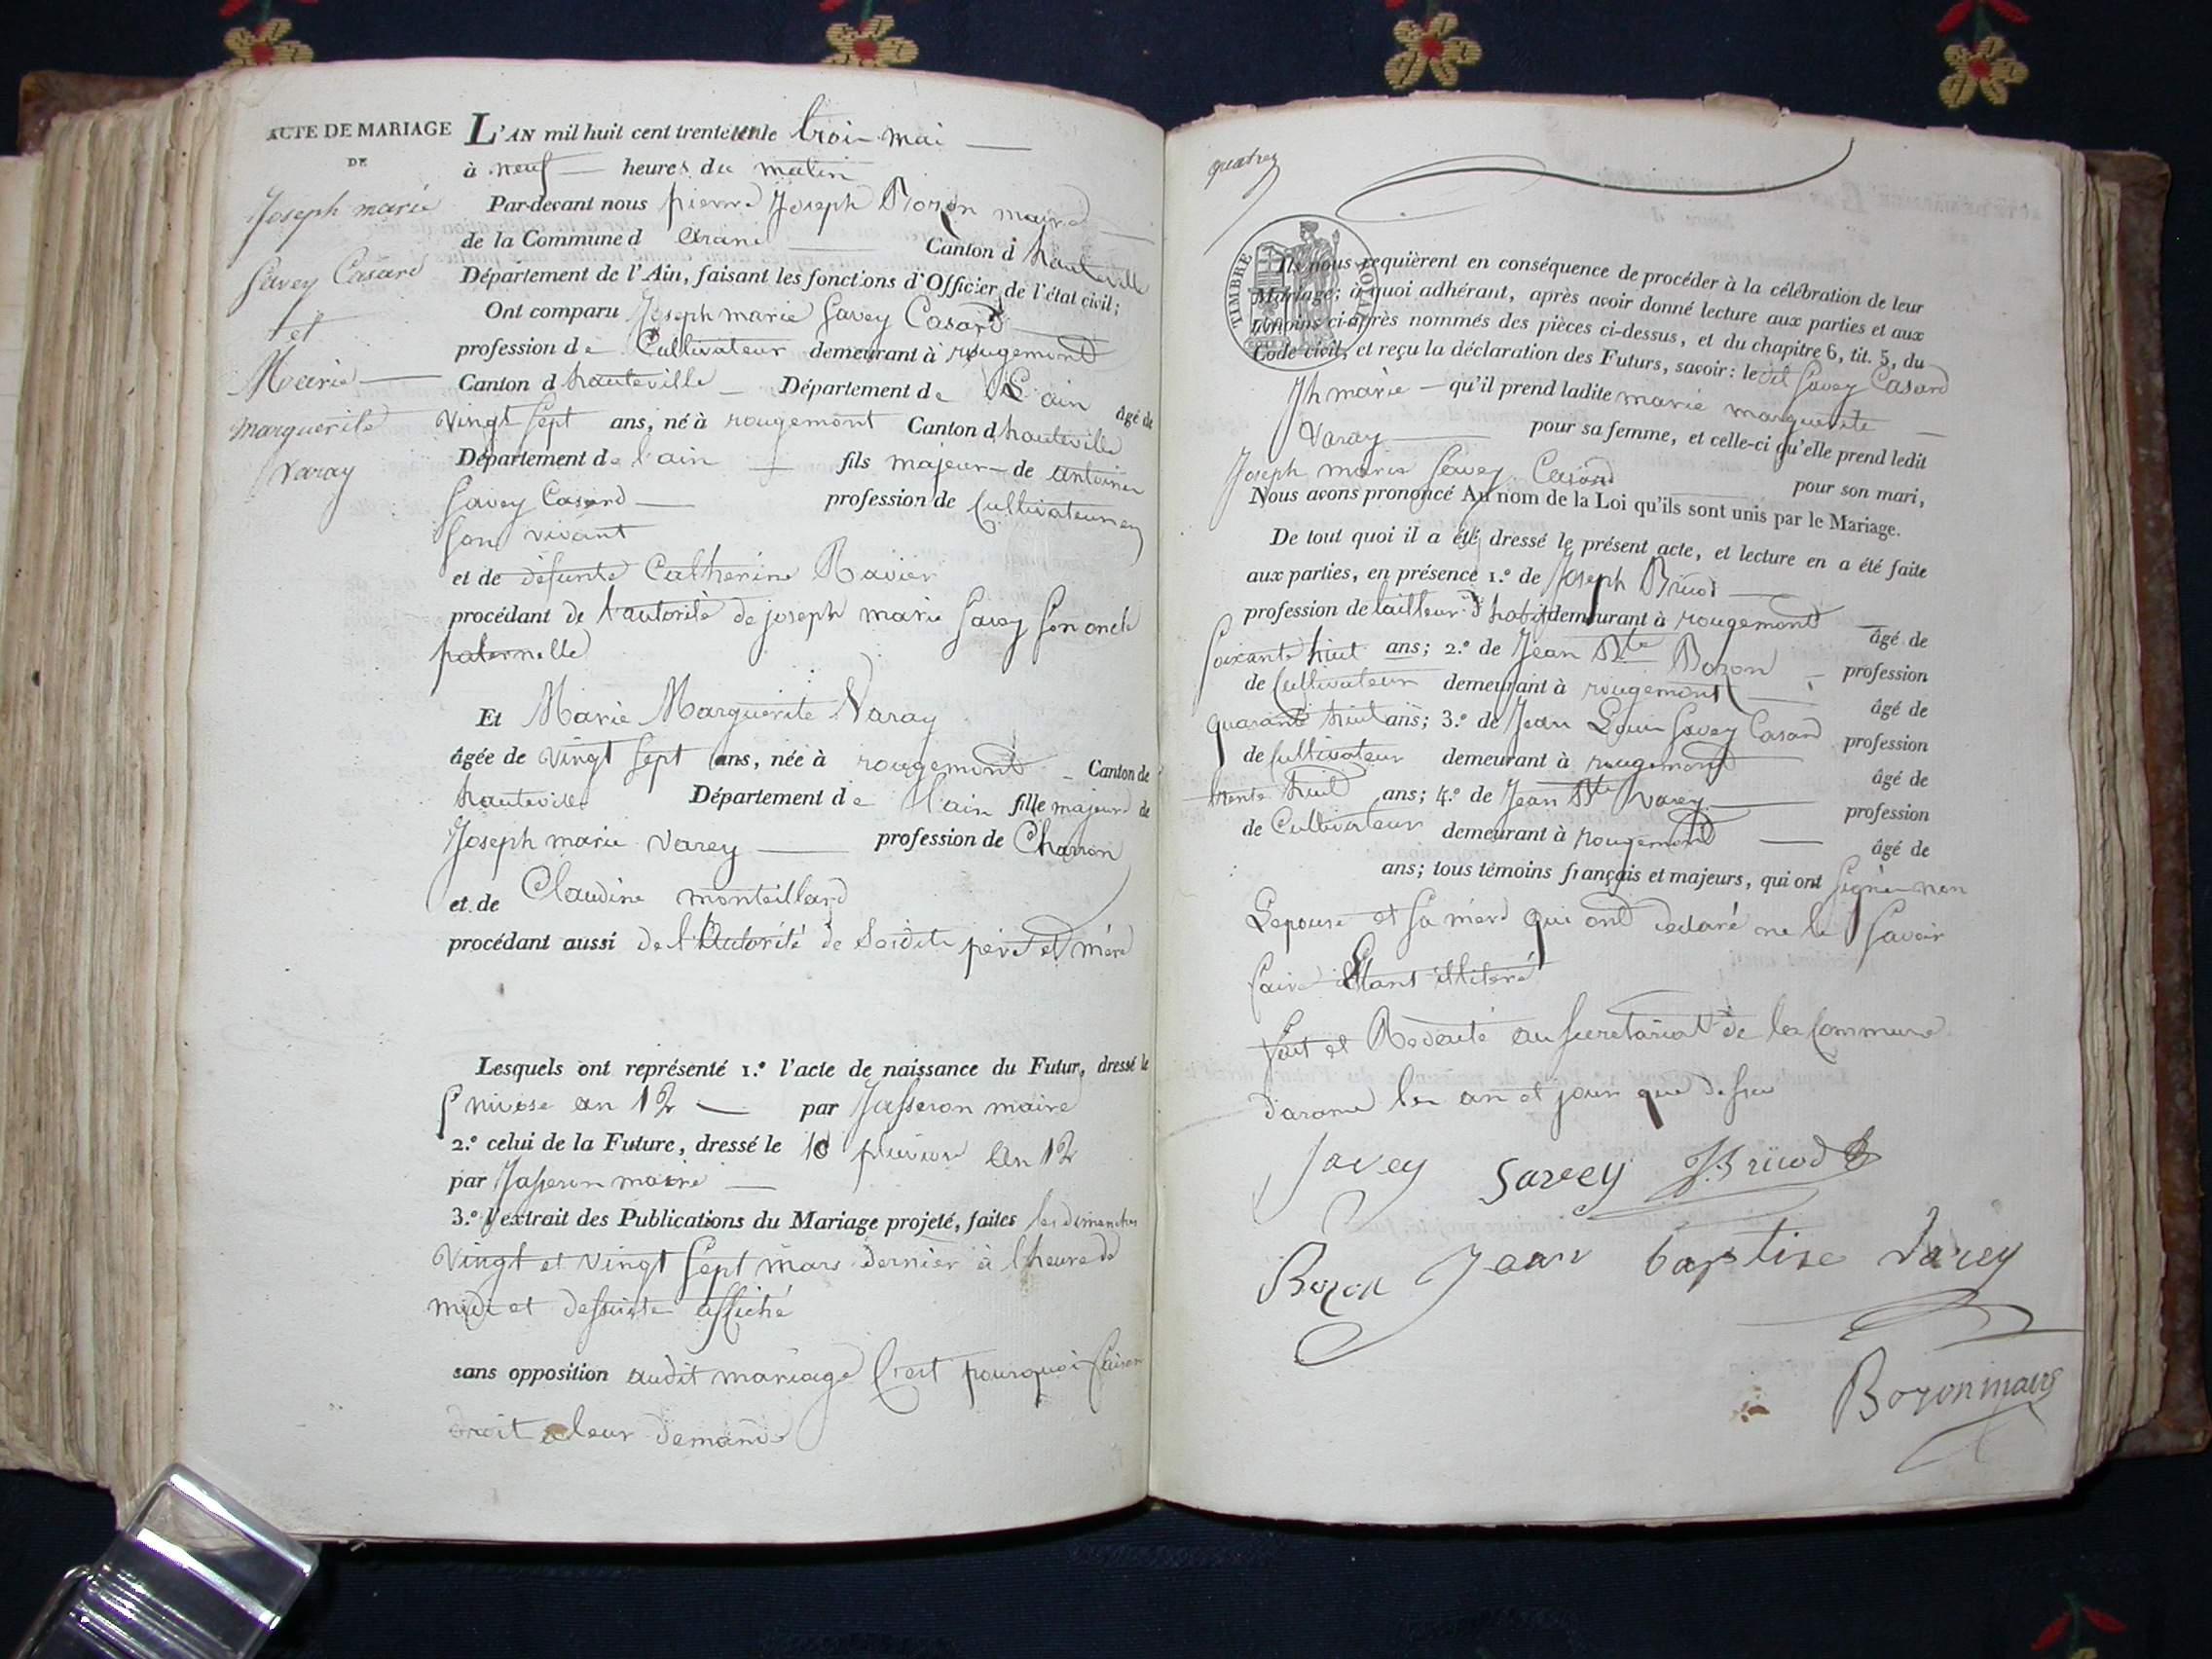 ACTE DE MARIAGE
DE
Joseph marie
Savey Casard
et
Marie
marguerite
Varay
L'AN mil huit cent trente un le troi mai
à neuf heures du matin
Par-devant nous pierre Joseph Bozon maire
de la Commune d arane Canton d hauteville
Département de l'Ain, faisant les fonctions d'Officier de l'état civil;
Ont comparu Joseph marie Savey Casard
profession de Cultivateur demeurant à rougemont
Canton d hauteville Département de L'ain âgé de
vingt sept ans, né à rougemont Canton d hauteville
Département de l'ain fils majeur de antoine
Savey Casard profession de Cultivateur en
son vivant
et de defunte Catherine Ravier
procédant de l'autorité de joseph marie Savey son oncle
paternelle
Et Marie Marguerite Varay
âgée de vingt sept ans, née à rougemont Canton de
hauteville Département de l'ain fille majeure de
Joseph marie Varey profession de Charron
et de Claudine monteillard
procédant aussi de l'Autorité de Sesdits père et mère
Lesquels ont représenté 1.° l'acte de naissance du Futur, dressé le
nivose an 12 par Jasseron maire
2.° celui de la Future, dressé le 10 pluviose an 12
par Jasseron maire
3.° l'extrait des Publications du Mariage projeté, faites les dimanches
Vingt et vingt Sept mars dernier à l'heure de
midi et dessuite affiché
sans opposition audit mariage C'est pourquoi faisan
droit a leur demande
quatrez
TIMBRE ROYAL
Ils nous requièrent en conséquence de procéder à la célébration de leur
Mariage; à quoi adhérant, après avoir donné lecture aux parties et aux
témoins ci-après nommés des pièces ci-dessus, et du chapitre 6, tit. 5, du
Code civil, et reçu la déclaration des Futurs, savoir: le dit Savey Casard
Jh marie qu'il prend ladite marie marguerite
Varay pour sa femme, et celle-ci qu'elle prend ledit
Joseph marie Savey Casard pour son mari,
Nous avons prononcé Au nom de la Loi qu'ils sont unis par le Mariage.
De tout quoi il a été dressé le présent acte, et lecture en a été faite
aux parties, en présence 1.° de Joseph Brucod
profession de tailleur d'habit demeurant à rougemont âgé de
soixante huit ans; 2.° de Jean Bte Bozon profession
de Cultivateur demeurant à rougemont âgé de
quarante huit ans; 3.° de Jean Louis Savey Casard profession
de Cultivateur demeurant à rougemont âgé de
trente huit ans; 4.° de Jean Bte Varey profession
de Cultivateur demeurant à rougemont âgé de
ans; tous témoins français et majeurs, qui ont Signé non
Lepouse et sa mere qui ont declaré ne le Savoir
faire Etant illiteré
fait et au Secretariat de la Commune
darane les an et jour que dessu
Savey Savey J. Brucod
Bozon Jean baptise Varey
Bozon maire